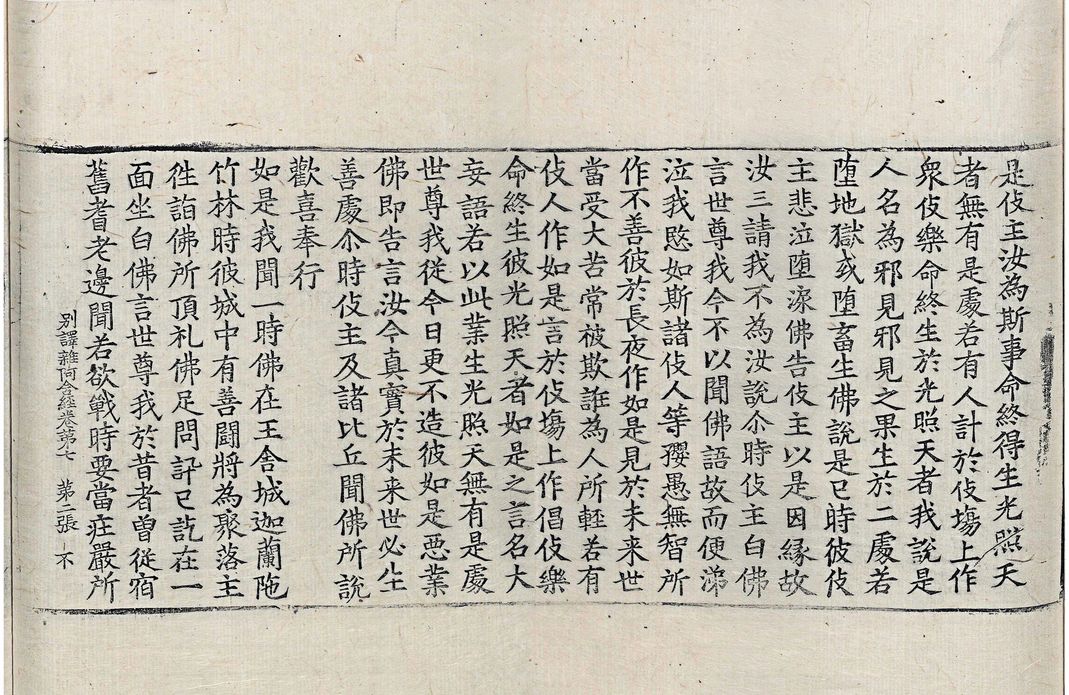 是伎主汝為斯事命終得生光照天
者無有是處若有人計於伎塲上作
衆伎樂命終生於光照天者我說是
人名為邪見邪見之果生於二處若
墮地獄或墮畜生佛說是已時彼伎
主悲泣墮淚佛告伎主以是因縁故
汝三請我不為汝說尒時伎主白佛
言世尊我今不以聞佛語故而便涕
泣我愍如斯諸伎人等孾愚無智所
作不善彼於長夜作如是見於未来世
當受大苦常被欺誑為人所輕若有
伎人作如是言於伎塲上作倡伎樂
命終生彼光照天者如是之言名大
妄語若以此業生光照天無有是處
世尊我從今日更不造彼如是惡業
佛即告言汝今真實於未来世必生
善處尒時伎主及諸比丘聞佛所說
歡喜奉行
如是我聞一時佛在王舍城迦蘭陁
竹林時彼城中有善鬪將為聚落主
徃詣佛所頂礼佛足問訊已訖在一
面坐白佛言世尊我於昔者曾從宿
舊耆老邊聞若欲戰時要當莊嚴所
別譯雜阿含経卷第七 第二張 不